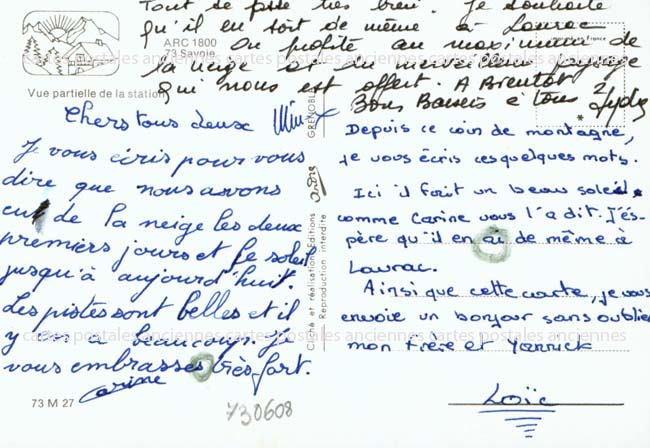 Tout se passe très bien. Je souhaite
qu'il en soit de même à Laurac
On profite au maximum de
la neige et du merveilleux paysage
qui nous est offert. A Bientôt
Bons Baisers à tous
ARC 1800
73 Savoie
Vue partielle de la station
Imprimé en France
Chers tous deux
Je vous écris pour vous
dire que nous avons
eu de la neige les deux
premiers jours et le soleil
jusqu'à aujourd'huit.
Les pistes sont belles et il
y en a beaucoup. Je
vous embrasses très fort.
Carine
73 M 27
730608
GRENOBLE
andré
Cliché et réalisation éditions
Reproduction interdite
Depuis ce coin de montagne,
je vous écris ces quelques mots.
Ici il fait un beau soleil
comme Carine vous l'a dit. J'és-
père qu'il en ai de même à
Laurac.
Ainsi que cette carte, je vous
envoie un bonjour sans oublier
mon frère et Yannick
Loïc
cartes postales anciennes cartes postales anciennes cartes postales anciennes
cartes postales anciennes cartes postales anciennes cartes postales anciennes